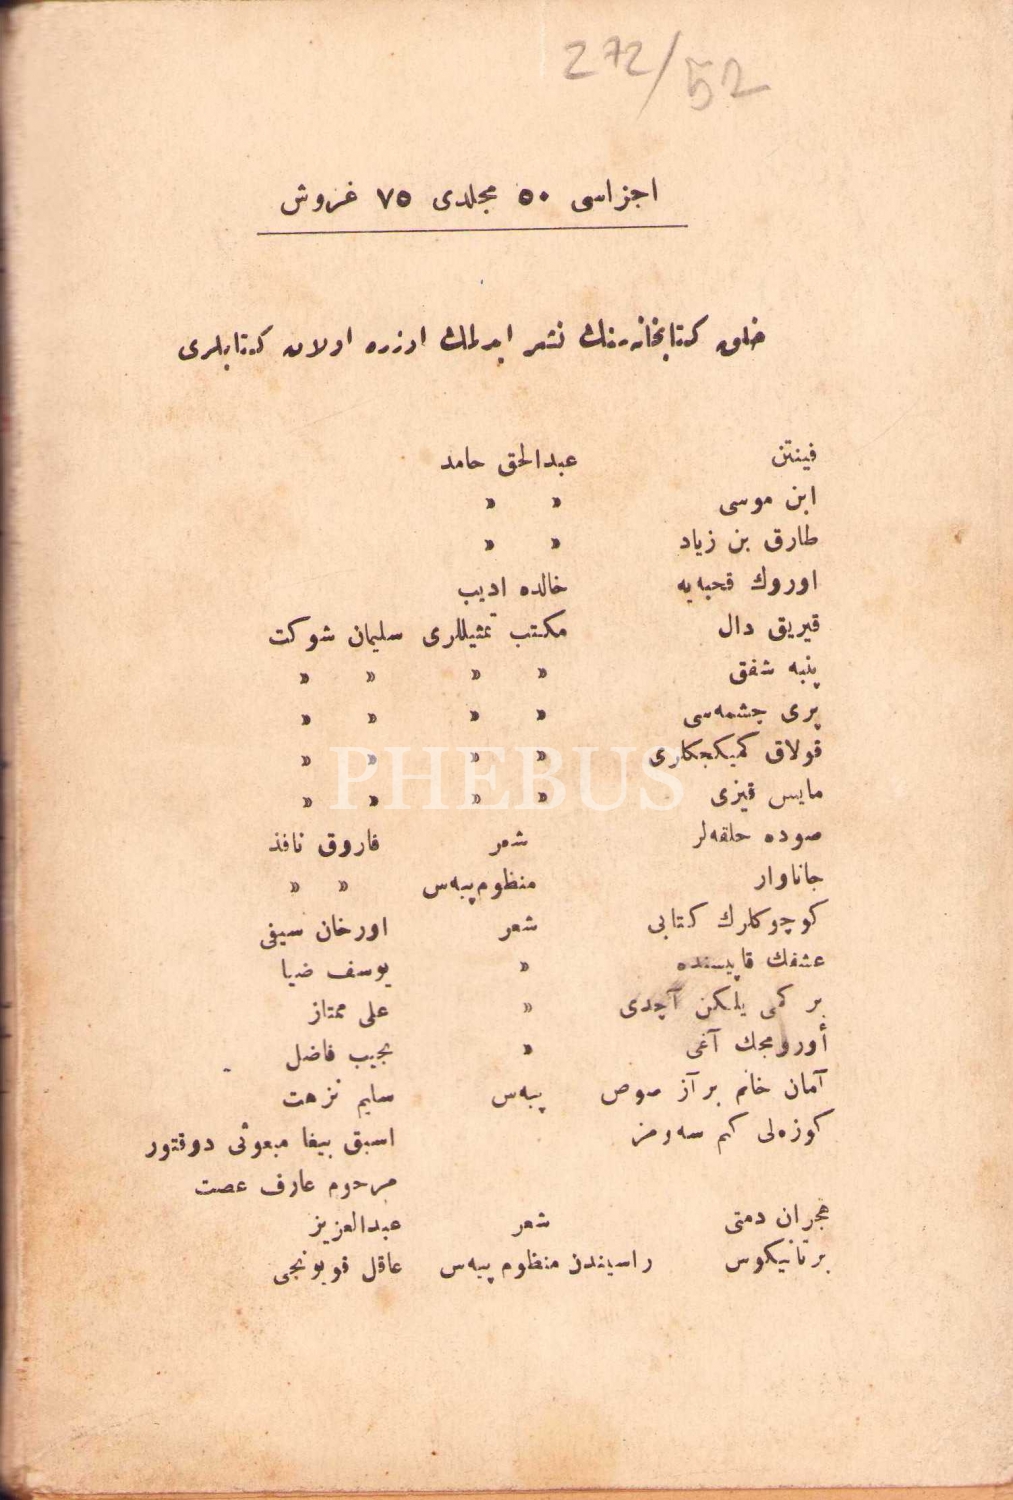 272/52
اجزاسی ٥٠ مجلدی ٧٥ غروش
خلق كتابخانه‌سنك نشر ایتمك اوزره اولان كتابلری
فینتن عبدالحق حامد
ابن موسی » »
طارق بن زیاد » »
اوروك قحبه‌یه خالده ادیب
قیریق دال مكتب تمثیللری سلیمان شوكت
پنبه شفق » » » »
پری چشمه‌سی » » » »
قولاق كمیكجكلری » » » »
مایس قیزی » » » »
صوده حلقه‌لر شعر فاروق نافذ
جاناوار منظوم پیه‌س » »
كوچوكلرك كتابی شعر اورخان سیفی
عشقك قاپیسنده » یوسف ضیا
بر كمی یلكن آچدی » علی ممتاز
أورومجك آغی » نجیب فاضل
آمان خانم بر آز صوص پیه‌س سلیم نزهت
كوزه‌لی كم سه‌ومز اسبق بیغا مبعوثی دوقتور
مرحوم عارف عصمت
هجران دمتی شعر عبدالعزیز
برتانیكوس راسیندن منظوم پیه‌س عاقل قویونجی
PHEBUS